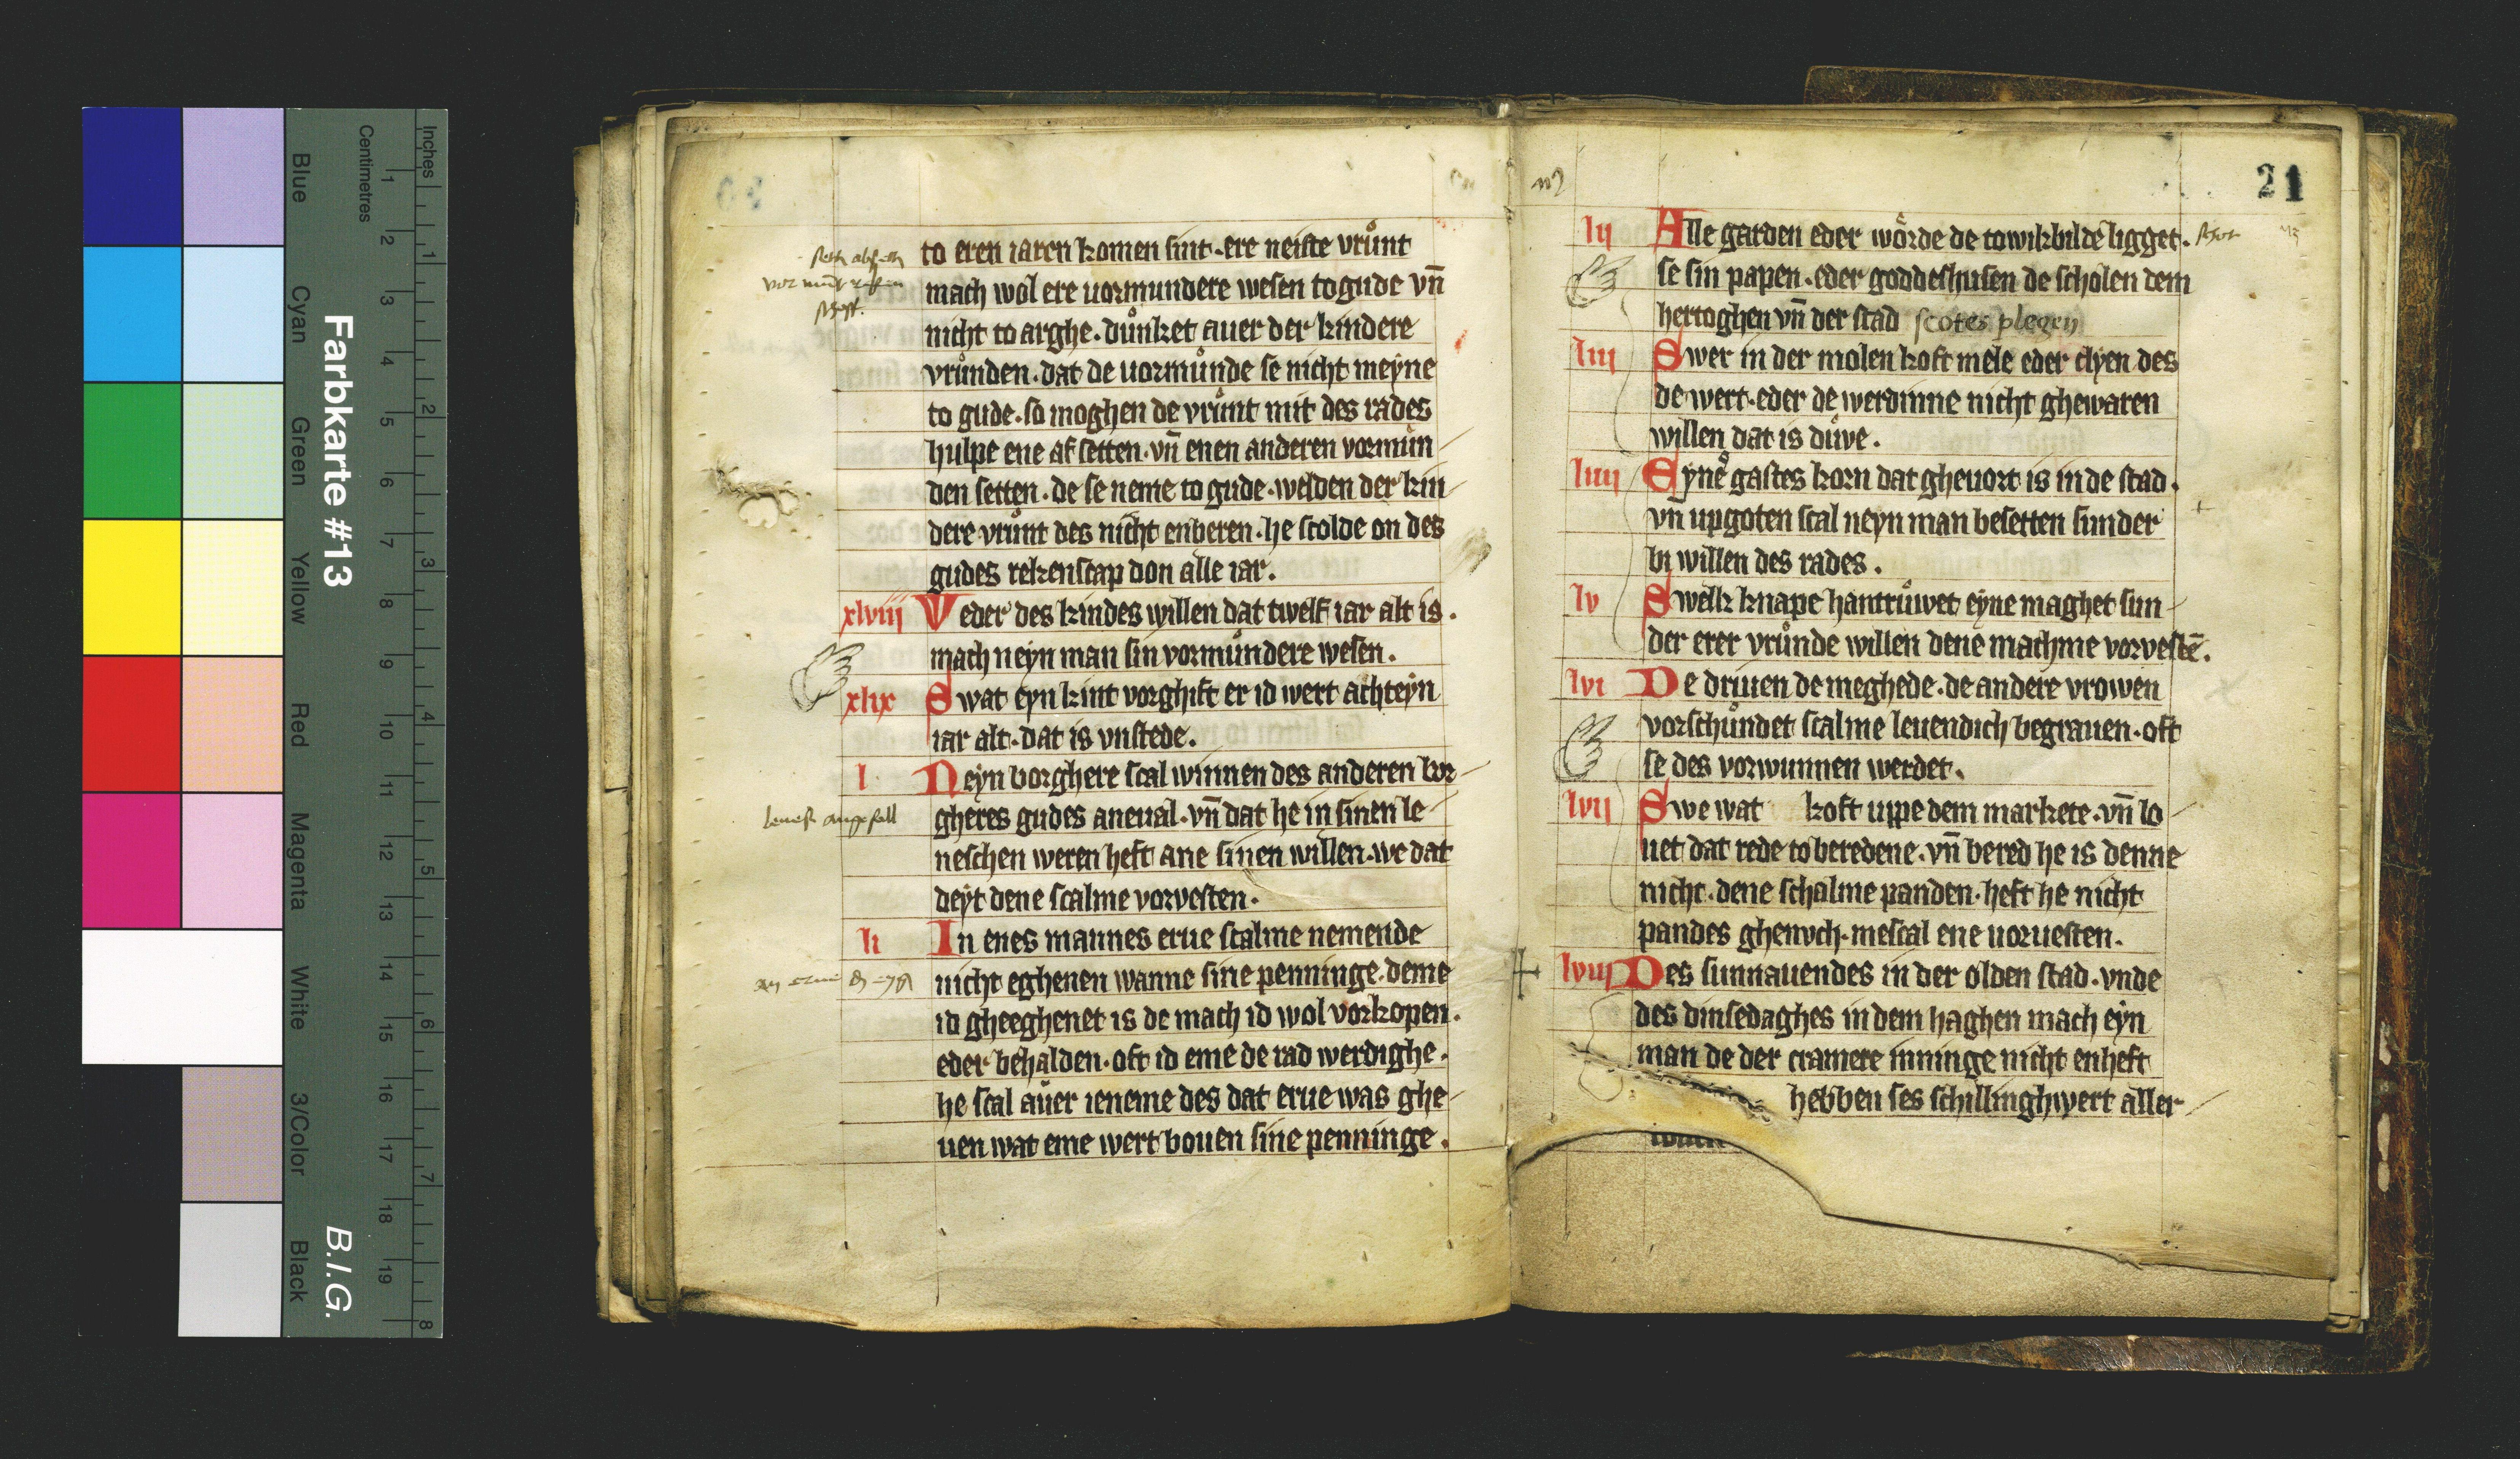 Blue
Cyan
Green
Yellow
Red
Magenta
White
3/Color
Black
Farbkarte #13
B.I.G.
Centimetres
Inches
1 2 3 4 5 6 7 8 9 10 11 12 13 14 15 16 17 18 19
1 2 3 4 5 6 7 8
to eren iaren komen sint · ere neiste vrůnt
mach wol ere uormundere wesen to gude vn̄
nicht to arghe · důnket auer der kindere
vrůnden · dat de uormůnde se nicht meyne
to gude · so moghen de vrůnt mit des rades
hulpe ene af setten · vn̄ enen anderen vormůn
den setten · de se neme to gude · welden der kin
dere vrůnt des nicht enberen · he scolde on des
gudes rekenscap don alle iar .
xlviii Veder des kindes willen dat twelf iar alt is .
mach neyn man sin vormůndere wesen .
xlix Swat eyn kint vorghift er id wert achteyn
iar alt · dat is vnstede .
l Neyn borghere scal winnen des anderen bor
gheres gudes aneual · vn̄ dat he in sinen le
neschen weren heft ane sinen willen · we dat
deyt dene scalme vorvesten ·
li In enes mannes erue scalme nemende
nicht eghenen wanne sine penninge · deme
id gheeghenet is de mach id wol vorkopen .
eder behalden · oft id eme de rad werdighe .
he scal auer ieneme des dat erue was ghe
uen wat eme wert bouen sine penninge .
21
lii Alle garden eder wörde de to wikbilde ligget .
se sin papen · eder goddeshusen de scholen dem
hertoghen vn̄ der stad scotes plegen
liii Swer in der molen koft mele eder clyen des
de wert · eder de werdinne nicht ghewaren
willen dat is důve .
liiii Eynes gastes korn dat gheuort is in de stad .
vn̄ upgoten scal neyn man besetten sunder
bi willen des rades .
lv Swelk knape hantrůwet eyne maghet sun
der erer vrůnde willen dene machme vorvestē .
lvi De driuen de meghede · de andere vrowen
vorschůndet scalme leuendich begrauen · oft
se des vorwunnen werdet .
lvii Swe wat koft uppe dem markete · vn̄ lo
uet dat rede to beredene · vn̄ bered he is denne
nicht · dene schalme panden · heft he nicht
pandes ghenoch · mescal ene uoruesten .
lviii Des sunnauendes in der olden stad · vnde
des dinsedaghes in dem haghen mach eyn
man de der cramere inninge nicht enheft
hebben ses schillinghwert aller